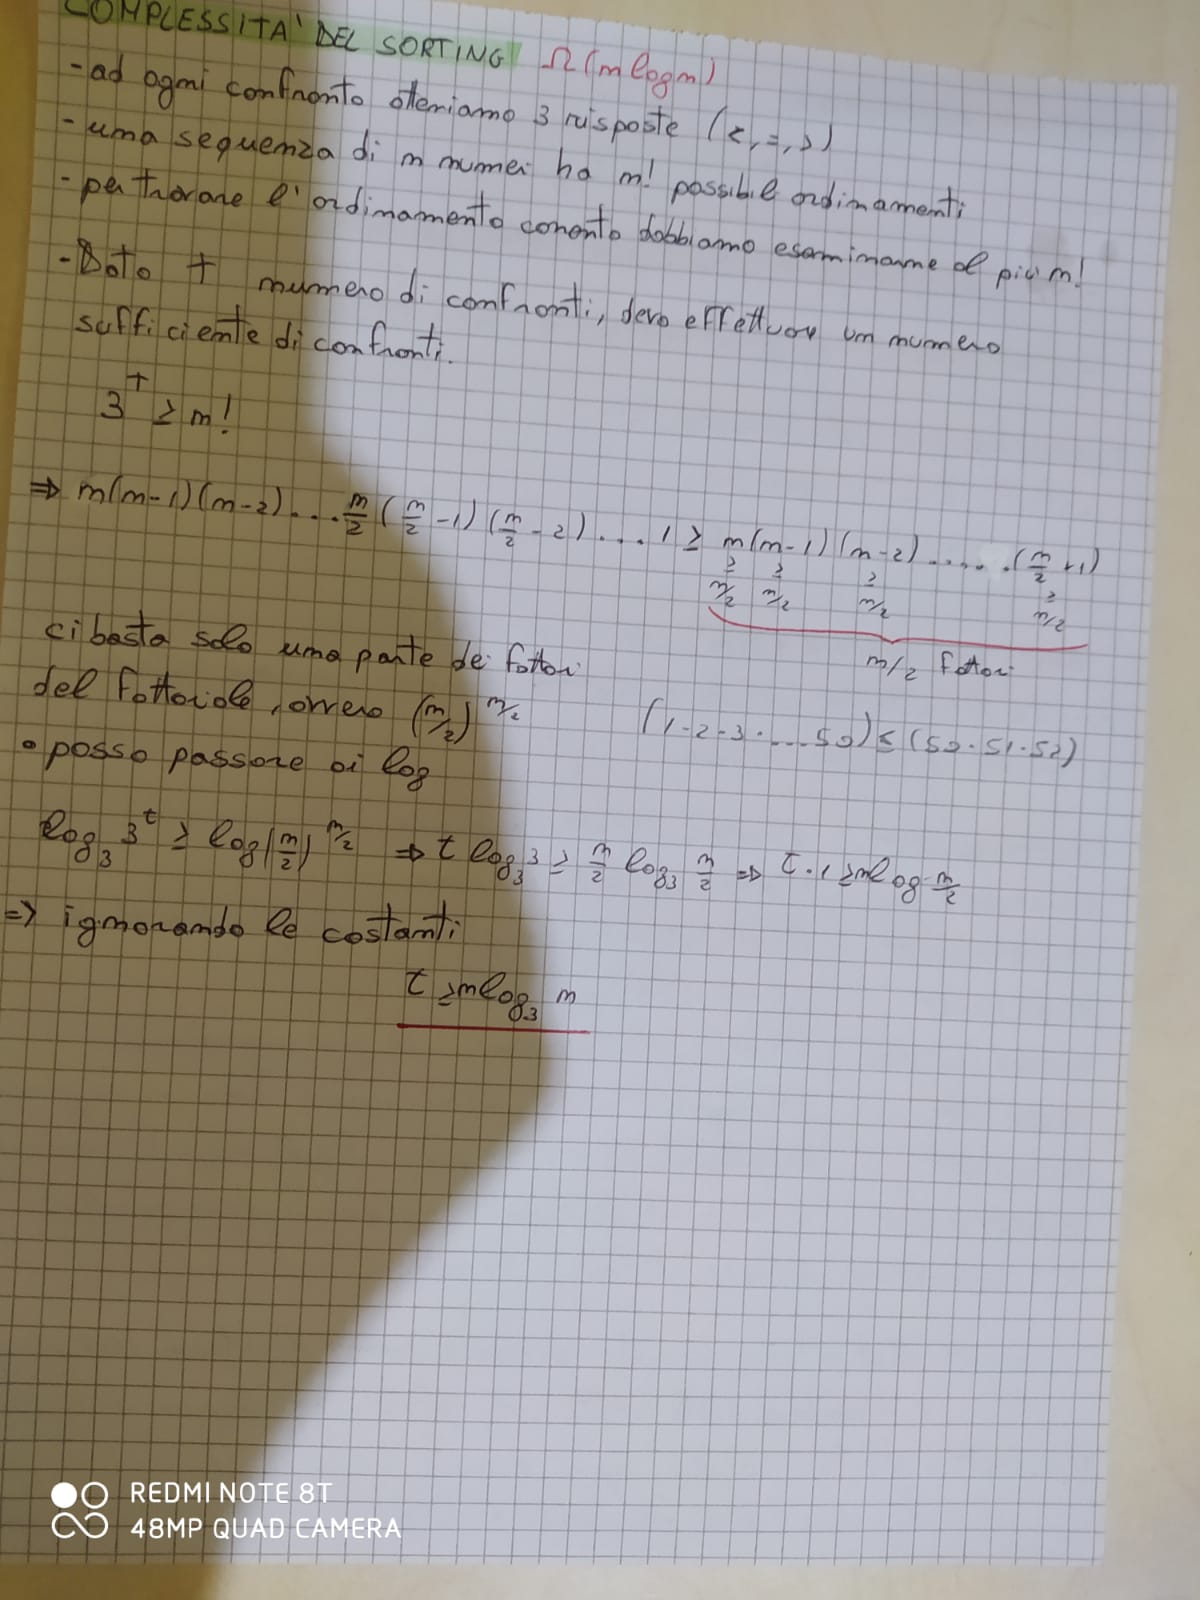 COMPLESSITA' DEL SORTING Ω(n log n)
- ad ogni confronto otteniamo 3 risposte (<, =, >)
- una sequenza di n numeri ha n! possibili ordinamenti
- per trovare l'ordinamento corretto dobbiamo esaminarne al più n!
- Dato t numero di confronti, devo effettuare un numero
sufficiente di confronti.
3^t ≥ n!
⇒ n(n-1)(n-2)... n/2 (n/2 -1) (n/2 - 2).... 1 ≥ n(n-1)(n-2)......(n/2 +1)
≥ ≥ ≥ ≥
n/2 n/2 n/2 n/2
n/2 fattori
ci basta solo una parte dei fattori
del fattoriale, ovvero (n/2)^n/2 (1·2·3·....50) ≤ (50·51·52)
• posso passare ai log
log₃ 3^t ≥ log(n/2)^n/2 ⇒ t log₃ 3 ≥ n/2 log₃ n/2 ⇒ t·1 ≥ n log n/2
=> ignorando le costanti
t ≥ n log₃ n
REDMI NOTE 8T
48MP QUAD CAMERA